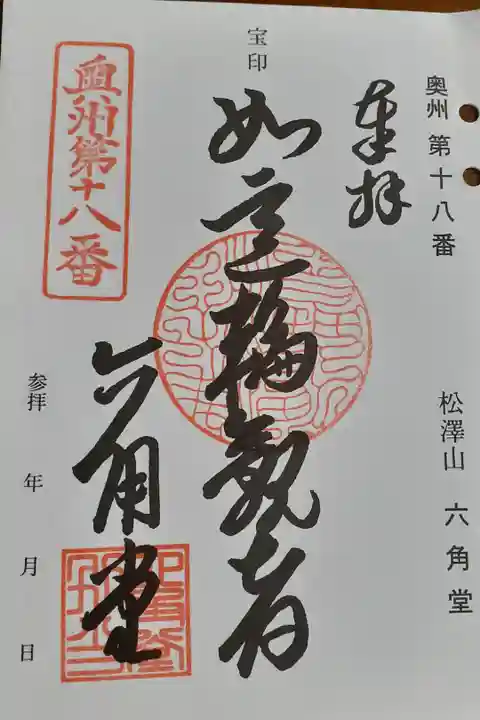 奥州 第十八番
松澤山 六角堂
奉拝
宝印
如意輪観音
六角堂
奥州第十八番
参拝 年 月 日